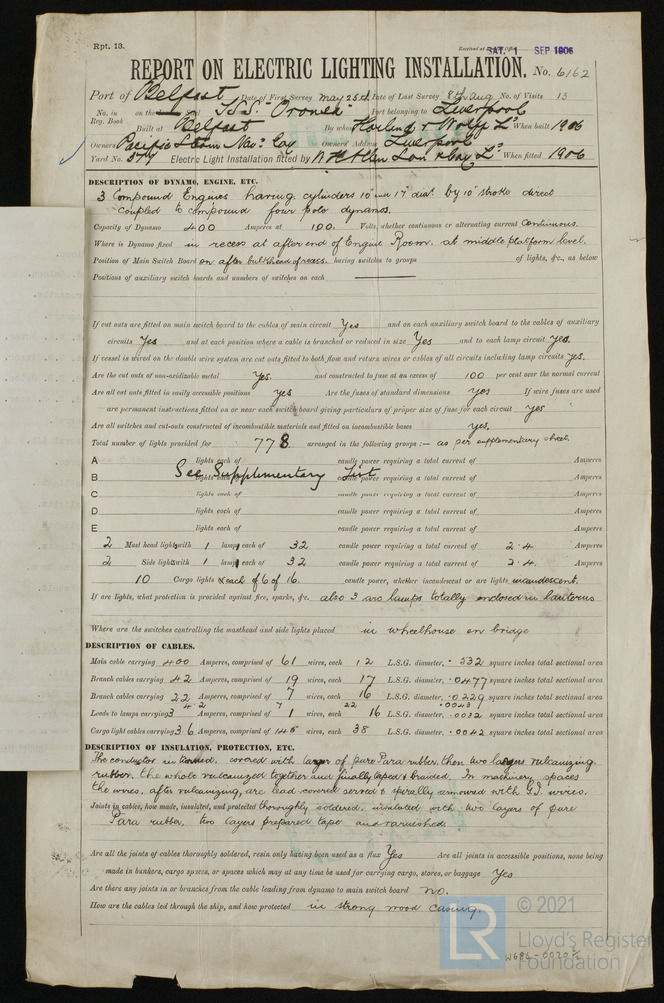 Rpt. 13.
Received at
SAT. 1 SEP 1906
REPORT ON ELECTRIC LIGHTING INSTALLATION. No. 6162
Port of Belfast Date of First Survey May 25th Date of Last Survey 8th Aug No. of Visits 13
No. in Reg. Book on the TSS "Oronsa" Port belonging to Liverpool
Built at Belfast By whom Harland & Wolff Ld When built 1906
Owners Pacific Steam Nav. Coy Owners' Address Liverpool
Yard No. 377 Electric Light Installation fitted by W H Allen Son & Coy Ld When fitted 1906
DESCRIPTION OF DYNAMO, ENGINE, ETC.
3 Compound Engines having cylinders 10" and 17" diar by 10" stroke direct
coupled to compound four pole dynamos.
Capacity of Dynamo 400 Amperes at 100 Volts, whether continuous or alternating current Continuous.
Where is Dynamo fixed in recess at after end of Engine Room. at middle platform level.
Position of Main Switch Board on after bulkhead of recess. having switches to groups of lights, &c., as below
Positions of auxiliary switch boards and numbers of switches on each
If cut outs are fitted on main switch board to the cables of main circuit Yes and on each auxiliary switch board to the cables of auxiliary
circuits Yes and at each position where a cable is branched or reduced in size Yes and to each lamp circuit yes.
If vessel is wired on the double wire system are cut outs fitted to both flow and return wires or cables of all circuits including lamp circuits yes.
Are the cut outs of non-oxidizable metal Yes. and constructed to fuse at an excess of 100 per cent over the normal current
Are all cut outs fitted in easily accessible positions yes Are the fuses of standard dimensions yes If wire fuses are used
are permanent instructions fitted on or near each switch board giving particulars of proper size of fuse for each circuit yes
Are all switches and cut-outs constructed of incombustible materials and fitted on incombustible bases yes.
Total number of lights provided for 778 arranged in the following groups :— as per supplementary sheet.
A lights each of candle power requiring a total current of Amperes
B lights each of candle power requiring a total current of Amperes
See Supplementary List
C lights each of candle power requiring a total current of Amperes
D lights each of candle power requiring a total current of Amperes
E lights each of candle power requiring a total current of Amperes
2 Mast head lights with 1 lamp each of 32 candle power requiring a total current of 2.4 Amperes
2 Side lights with 1 lamp each of 32 candle power requiring a total current of 2.4 Amperes
10 Cargo lights each of 6 of 16. candle power, whether incandescent or arc lights incandescent.
If arc lights, what protection is provided against fire, sparks, &c. also 3 arc lamps totally enclosed in lanterns
Where are the switches controlling the masthead and side lights placed in wheelhouse on bridge
DESCRIPTION OF CABLES.
Main cable carrying 400 Amperes, comprised of 61 wires, each 12 L.S.G. diameter, .532 square inches total sectional area
Branch cables carrying 42 Amperes, comprised of 19 wires, each 17 L.S.G. diameter, .0477 square inches total sectional area
Branch cables carrying 22 Amperes, comprised of 7 wires, each 16 L.S.G. diameter, .0229 square inches total sectional area
4.2 7 22 .0043
Leads to lamps carrying 3 Amperes, comprised of 1 wires, each 16 L.S.G. diameter, .0032 square inches total sectional area
Cargo light cables carrying 3.6 Amperes, comprised of 145 wires, each 38 L.S.G. diameter, .0042 square inches total sectional area
DESCRIPTION OF INSULATION, PROTECTION, ETC.
The conductor is tinned, covered with layer of pure Para rubber, then two layers vulcanizing
rubber, the whole vulcanized together and finally taped & braided. In machinery spaces
the wires, after vulcanizing, are lead covered served & spirally armoured with G.I. wires.
Joints in cables, how made, insulated, and protected thoroughly soldered, insulated with two layers of pure
Para rubber, two layers prepared tape and varnished.
Are all the joints of cables thoroughly soldered, resin only having been used as a flux Yes Are all joints in accessible positions, none being
made in bunkers, cargo spaces, or spaces which may at any time be used for carrying cargo, stores, or baggage Yes
Are there any joints in or branches from the cable leading from dynamo to main switch board no.
How are the cables led through the ship, and how protected in strong wood casing.
© 2021
LR
Lloyd's Register
Foundation
W684-0020